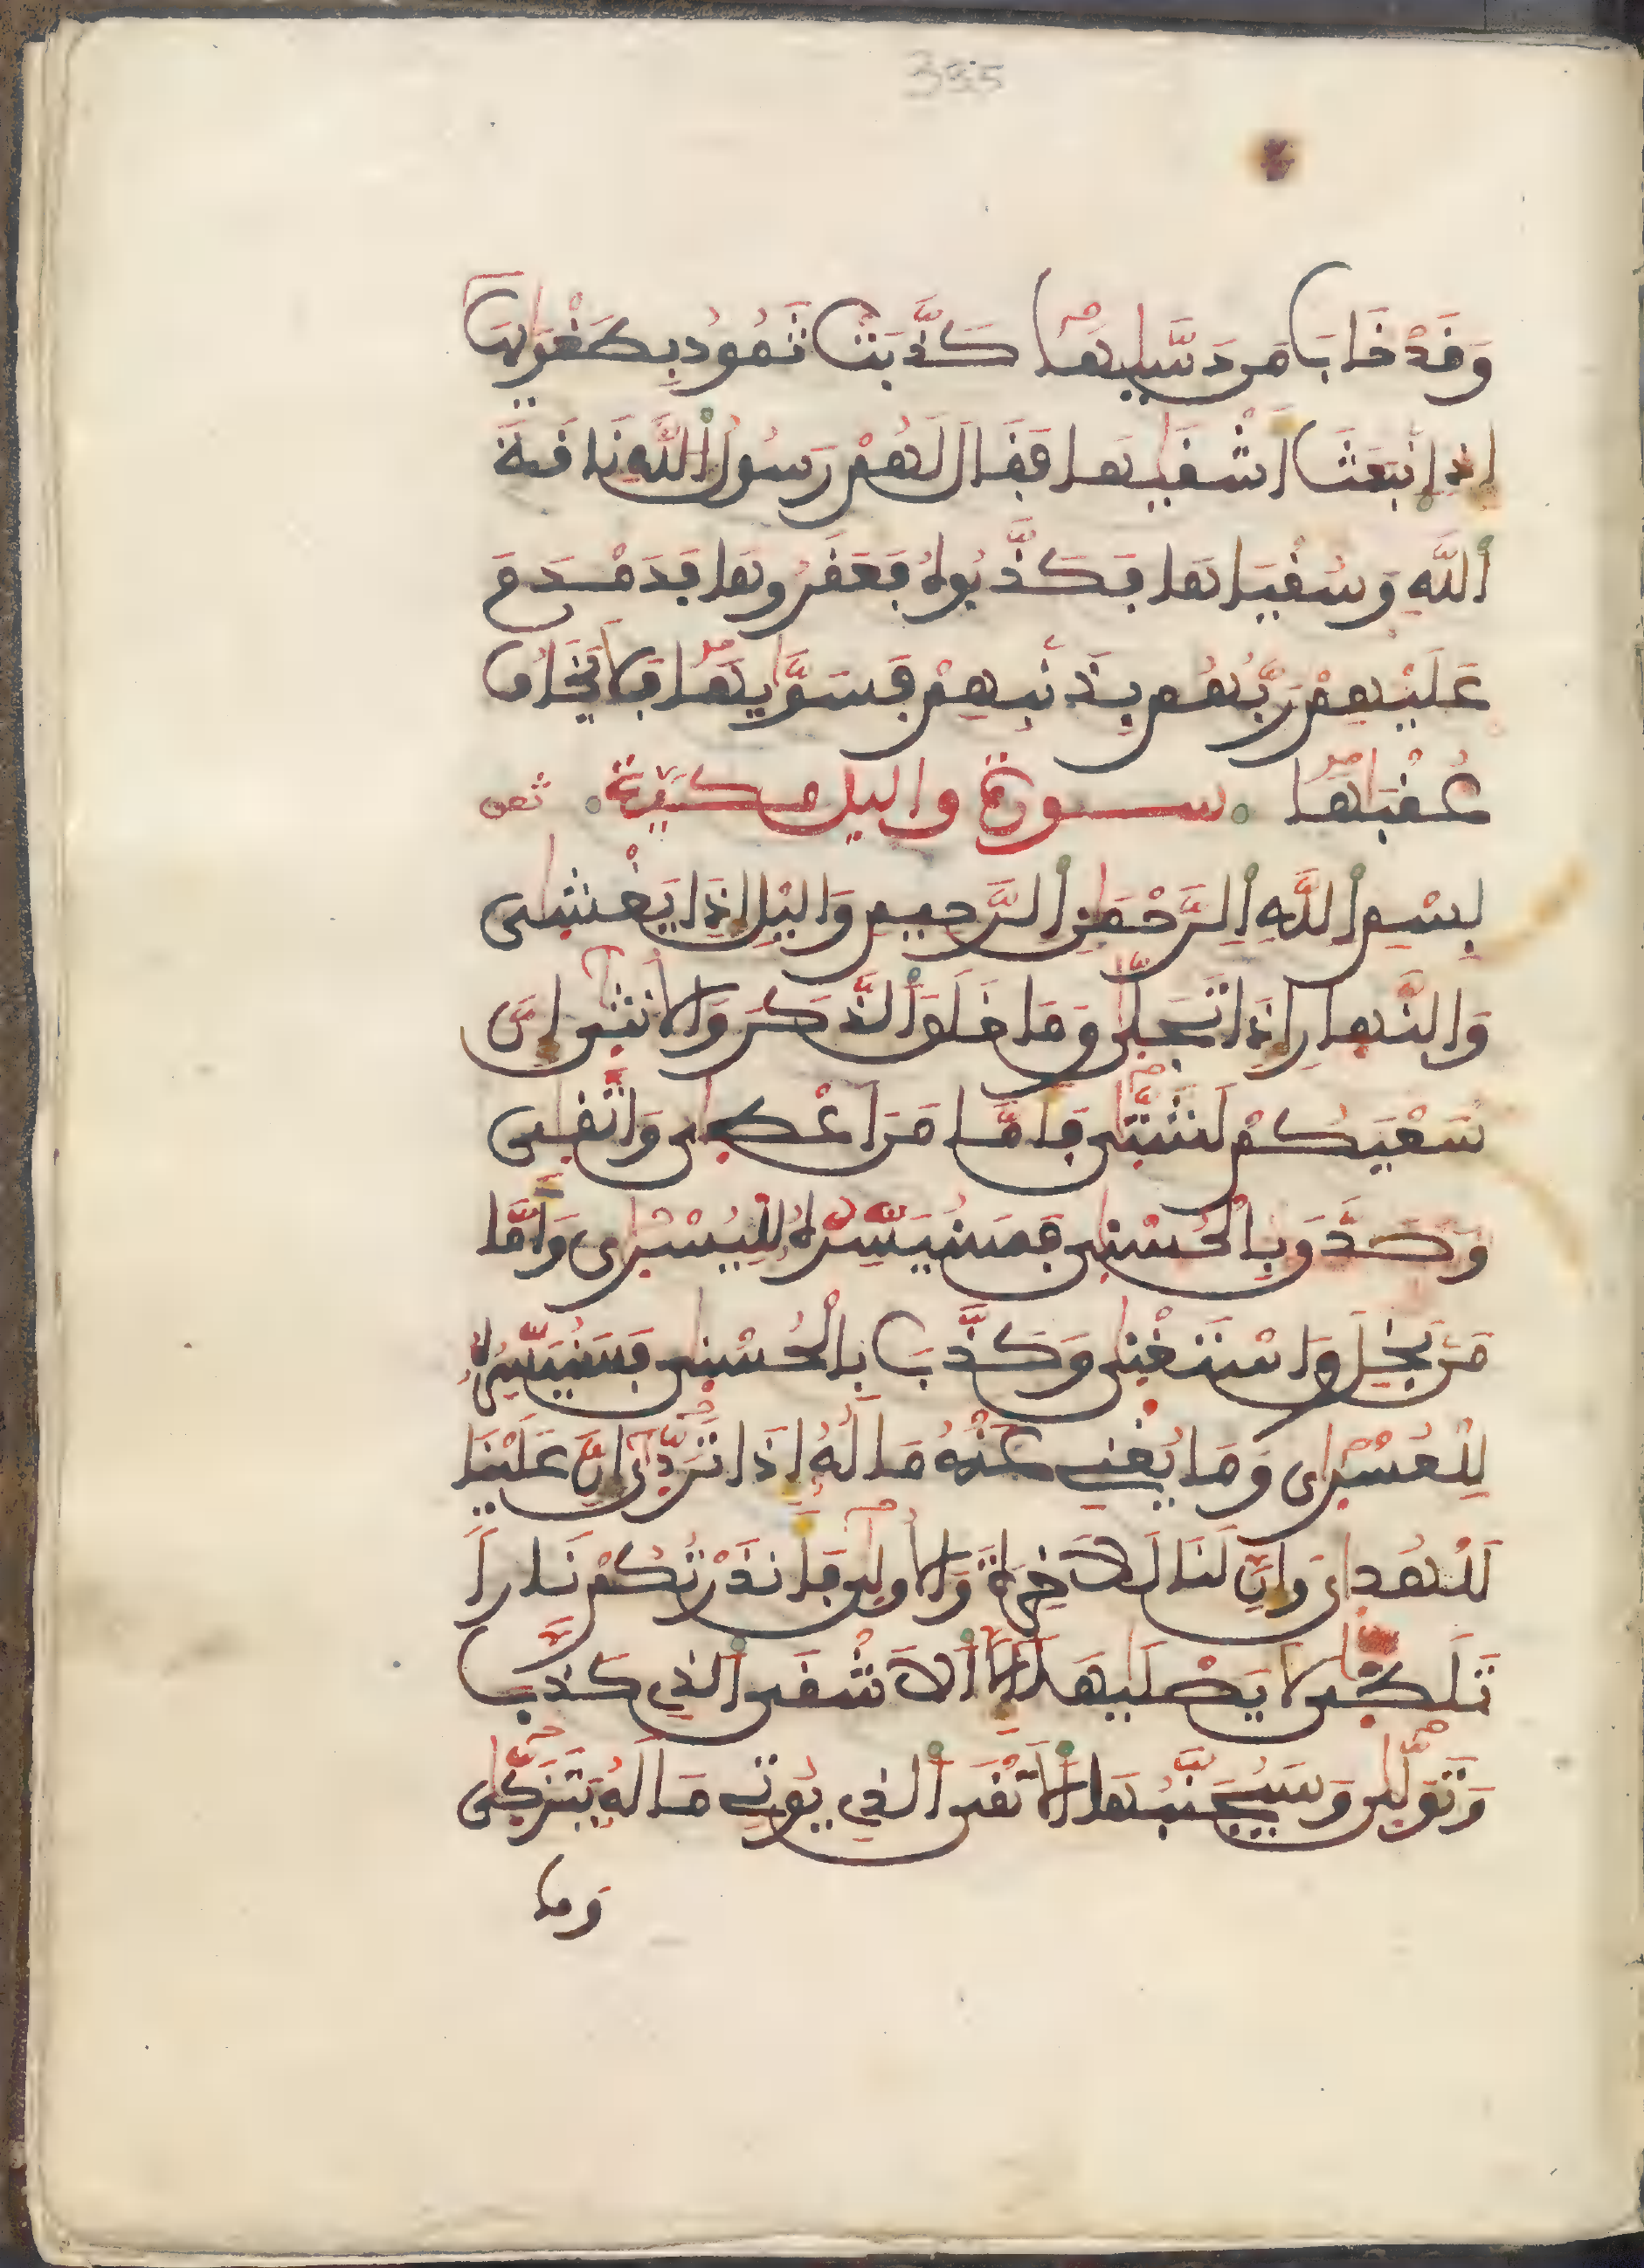 335
وَقَدْ خَابَ مَن دَسَّيٰهَا كَذَّبَتْ ثَمُودُ بِطَغْوَيٰهَا
إِذِ اِنۢبَعَثَ أَشْقَيٰهَا فَقَالَ لَهُمْ رَسُولُ اُللَّهِ نَاقَةَ
اَللَّهِ وَسُقْيَٰهَا فَكَذَّبُوهُ فَعَقَرُوهَا فَدَمْدَمَ
عَلَيْهِمْ رَبُّهُم بِذَنۢبِهِمْ فَسَوَّيٰهَا فَلَا يَخَافُ
عُقْبَٰهَا سورة واليل مكية ثمن
بِسْمِ اِللَّهِ اِلرَّحْمَٰنِ اِلرَّحِيمِ وَاليْلِ إِذَا يَغْشَىٰ
وَالنَّهَارِ إِذَا تَجَلَّىٰ وَمَا خَلَقَ اَلذَّكَرَ وَالُانثَىٰ إِنَّ
سَعْيَكُمْ لَشَتَّىٰ فَأَمَّا مَنَ اَعْطَىٰ وَاتَّقَىٰ
وَصَدَّقَ بِالْحُسْنَىٰ فَسَنُيَسِّرُهُ لِلْيُسْرَىٰ وَأَمَّا
مَنۢ بَخِلَ وَاسْتَغْنَىٰ وَكَذَّبَ بِالْحُسْنَىٰ فَسَنُيَسِّرُهُ
لِلْعُسْرَىٰ وَمَا يُغْنِي عَنْهُ مَالُهُ إِذَا تَرَدَّىٰ إِنَّ عَلَيْنَا
لَلْهُدَىٰ وَإِنَّ لَنَا لَلَاخِرَةَ وَالُاولَىٰ فَأَنذَرْتُكُمْ نَاراً
تَلَظَّىٰ لَا يَصْلَيٰهَا إِلَّا اَلَاشْقَى اَلذِي كَذَّبَ
وَتَوَلَّىٰ وَسَيُجَنَّبُهَا اَلَاتْقَى اَلذِي يُوتِي مَالَهُ يَتَزَكَّىٰ
وما